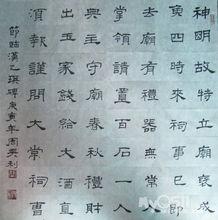 神明故特立廟褒成
侯四時來祠事已即
去廟有禮器無常人
掌領請置百石一人
典主守廟春秋禮財
出王家錢給犬酒直
須報謹問大常祠曹
節臨漢乙瑛碑庚寅年周英利